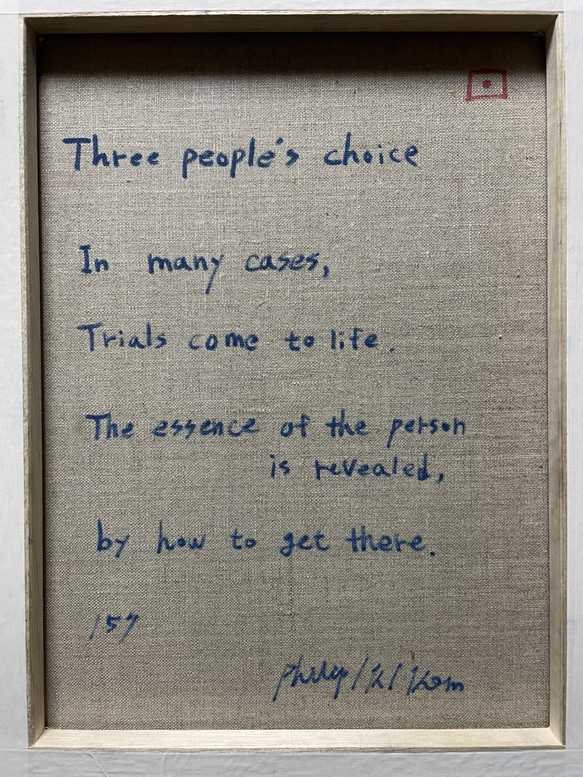 Three people's choice
In many cases,
Trials come to life.
The essence of the person
is revealed,
by how to get there.
157